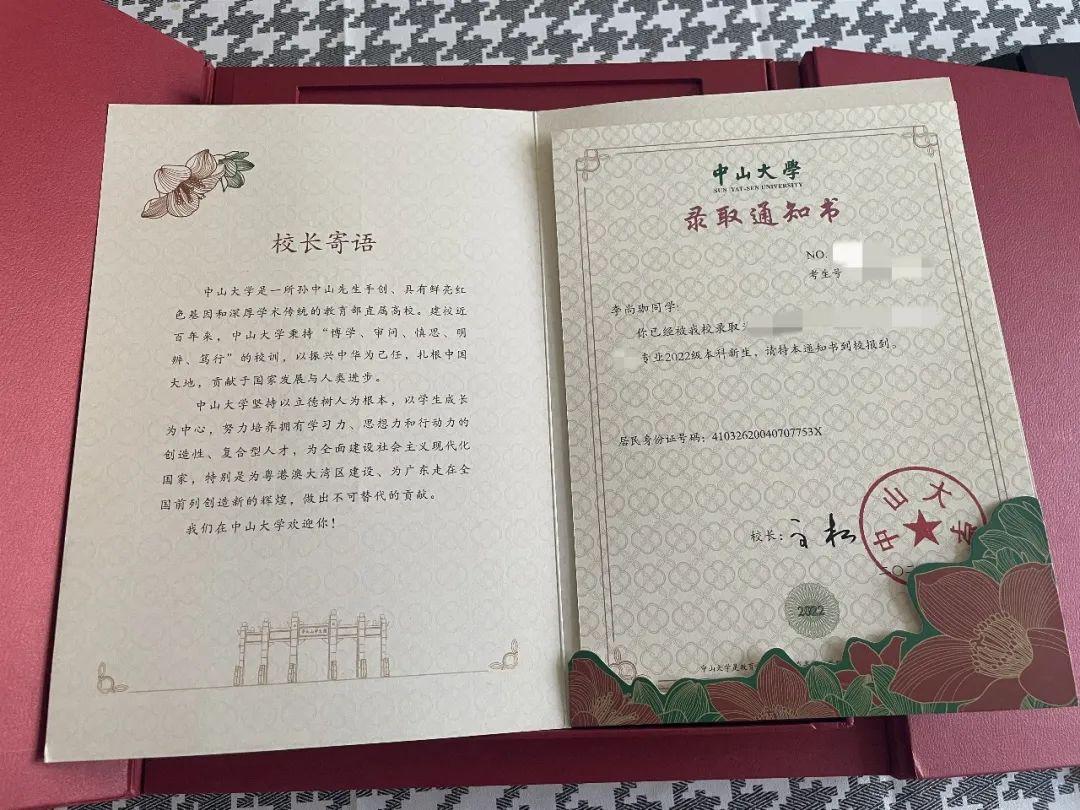 校长寄语
中山大学是一所孙中山先生手创、具有鲜亮红
色基因和深厚学术传统的教育部直属高校。建校近
百年来，中山大学秉持“博学、审问、慎思、明
辨、笃行”的校训，以振兴中华为己任，扎根中国
大地，贡献于国家发展与人类进步。
中山大学坚持以立德树人为根本，以学生成长
为中心，努力培养拥有学习力、思想力和行动力的
创造性、复合型人才，为全面建设社会主义现代化
国家，特别是为粤港澳大湾区建设、为广东走在全
国前列创造新的辉煌，做出不可替代的贡献。
我们在中山大学欢迎你！
中山大學
SUN YAT-SEN UNIVERSITY
录取通知书
NO.
考生号
李尚珈同学:
你已经被我校录取
专业2022级本科新生，请持本通知书到校报到。
居民身份证号码：41032620040707753X
校长：
中山大学
二〇二
2022
中山大学是教育